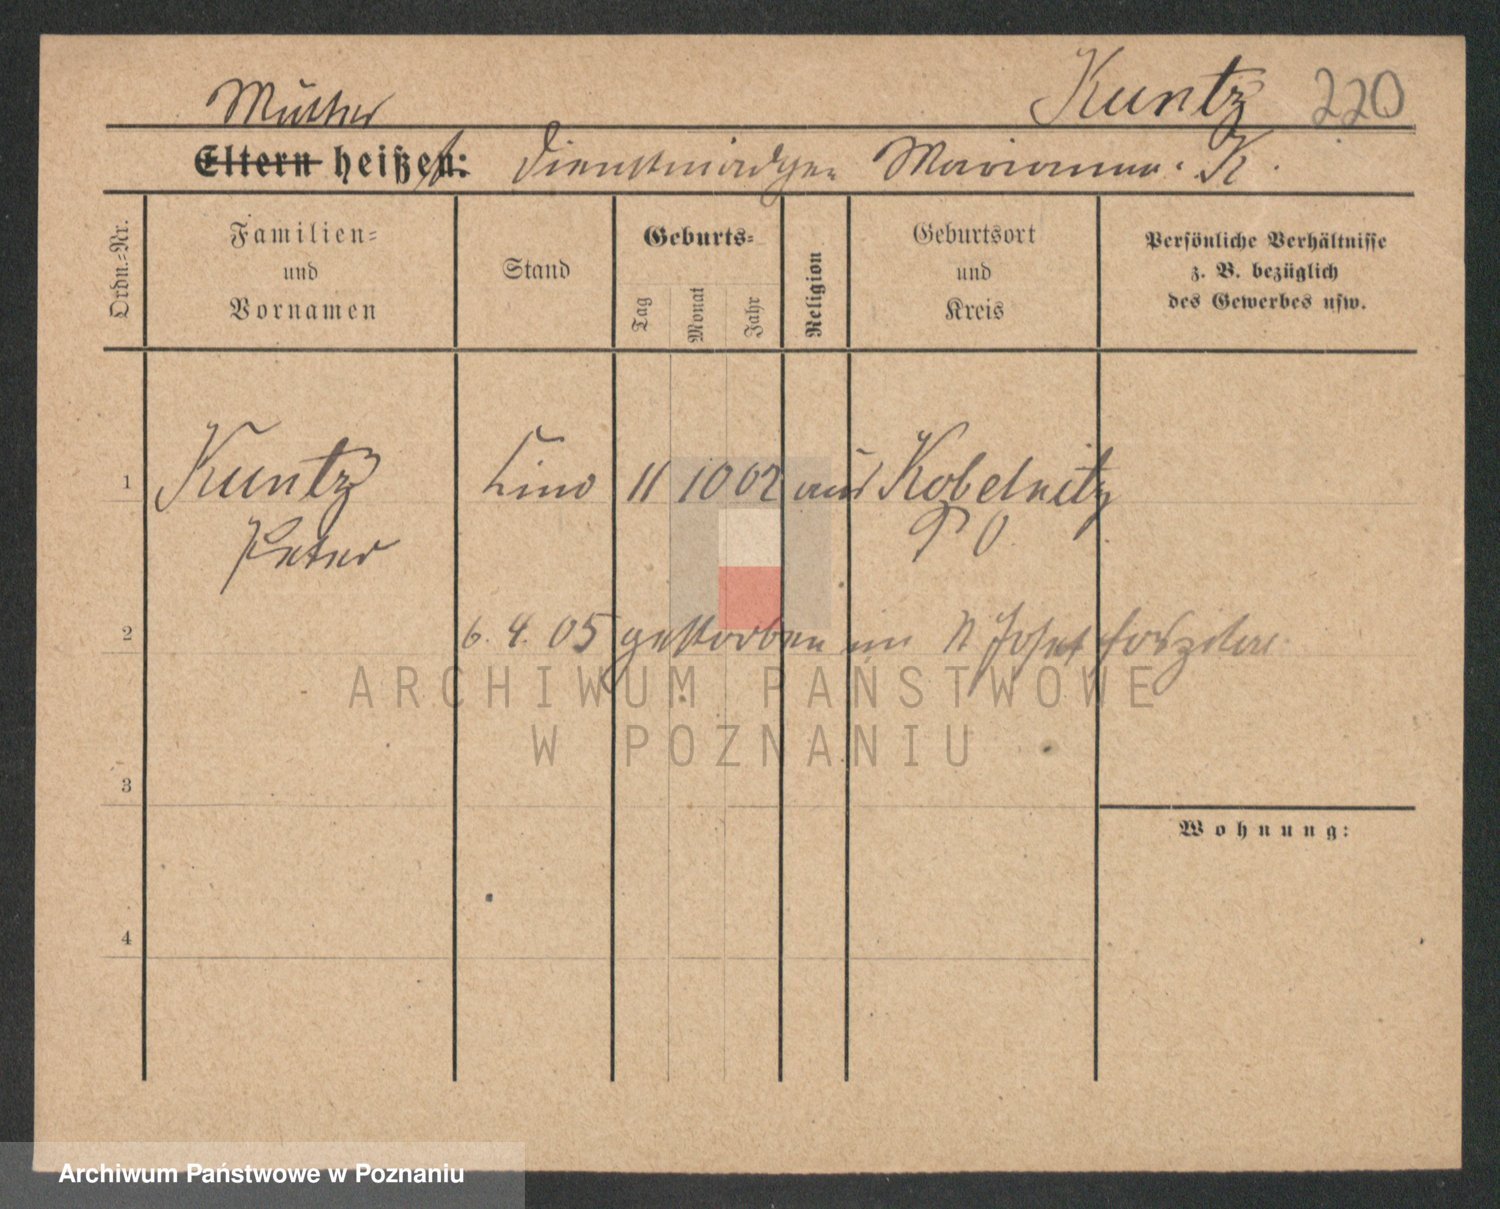 Kuntz 220
Mutter
Eltern heißen: Dienstmädchen Marianna K.
Ordn.-Nr.
Familien-
und
Vornamen
Stand
Geburts-
Tag
Monat
Jahr
Religion
Geburtsort
und
Kreis
Persönliche Verhältnisse
z. B. bezüglich
des Gewerbes usw.
1 Kuntz Kind 11 10 02 aus Kobelnitz
Peter P O.
2 6. 4. 05 gestorben im St Josef
ARCHIWUM PAŃSTWOWE
W POZNANIU
3
Wohnung:
4
Archiwum Państwowe w Poznaniu